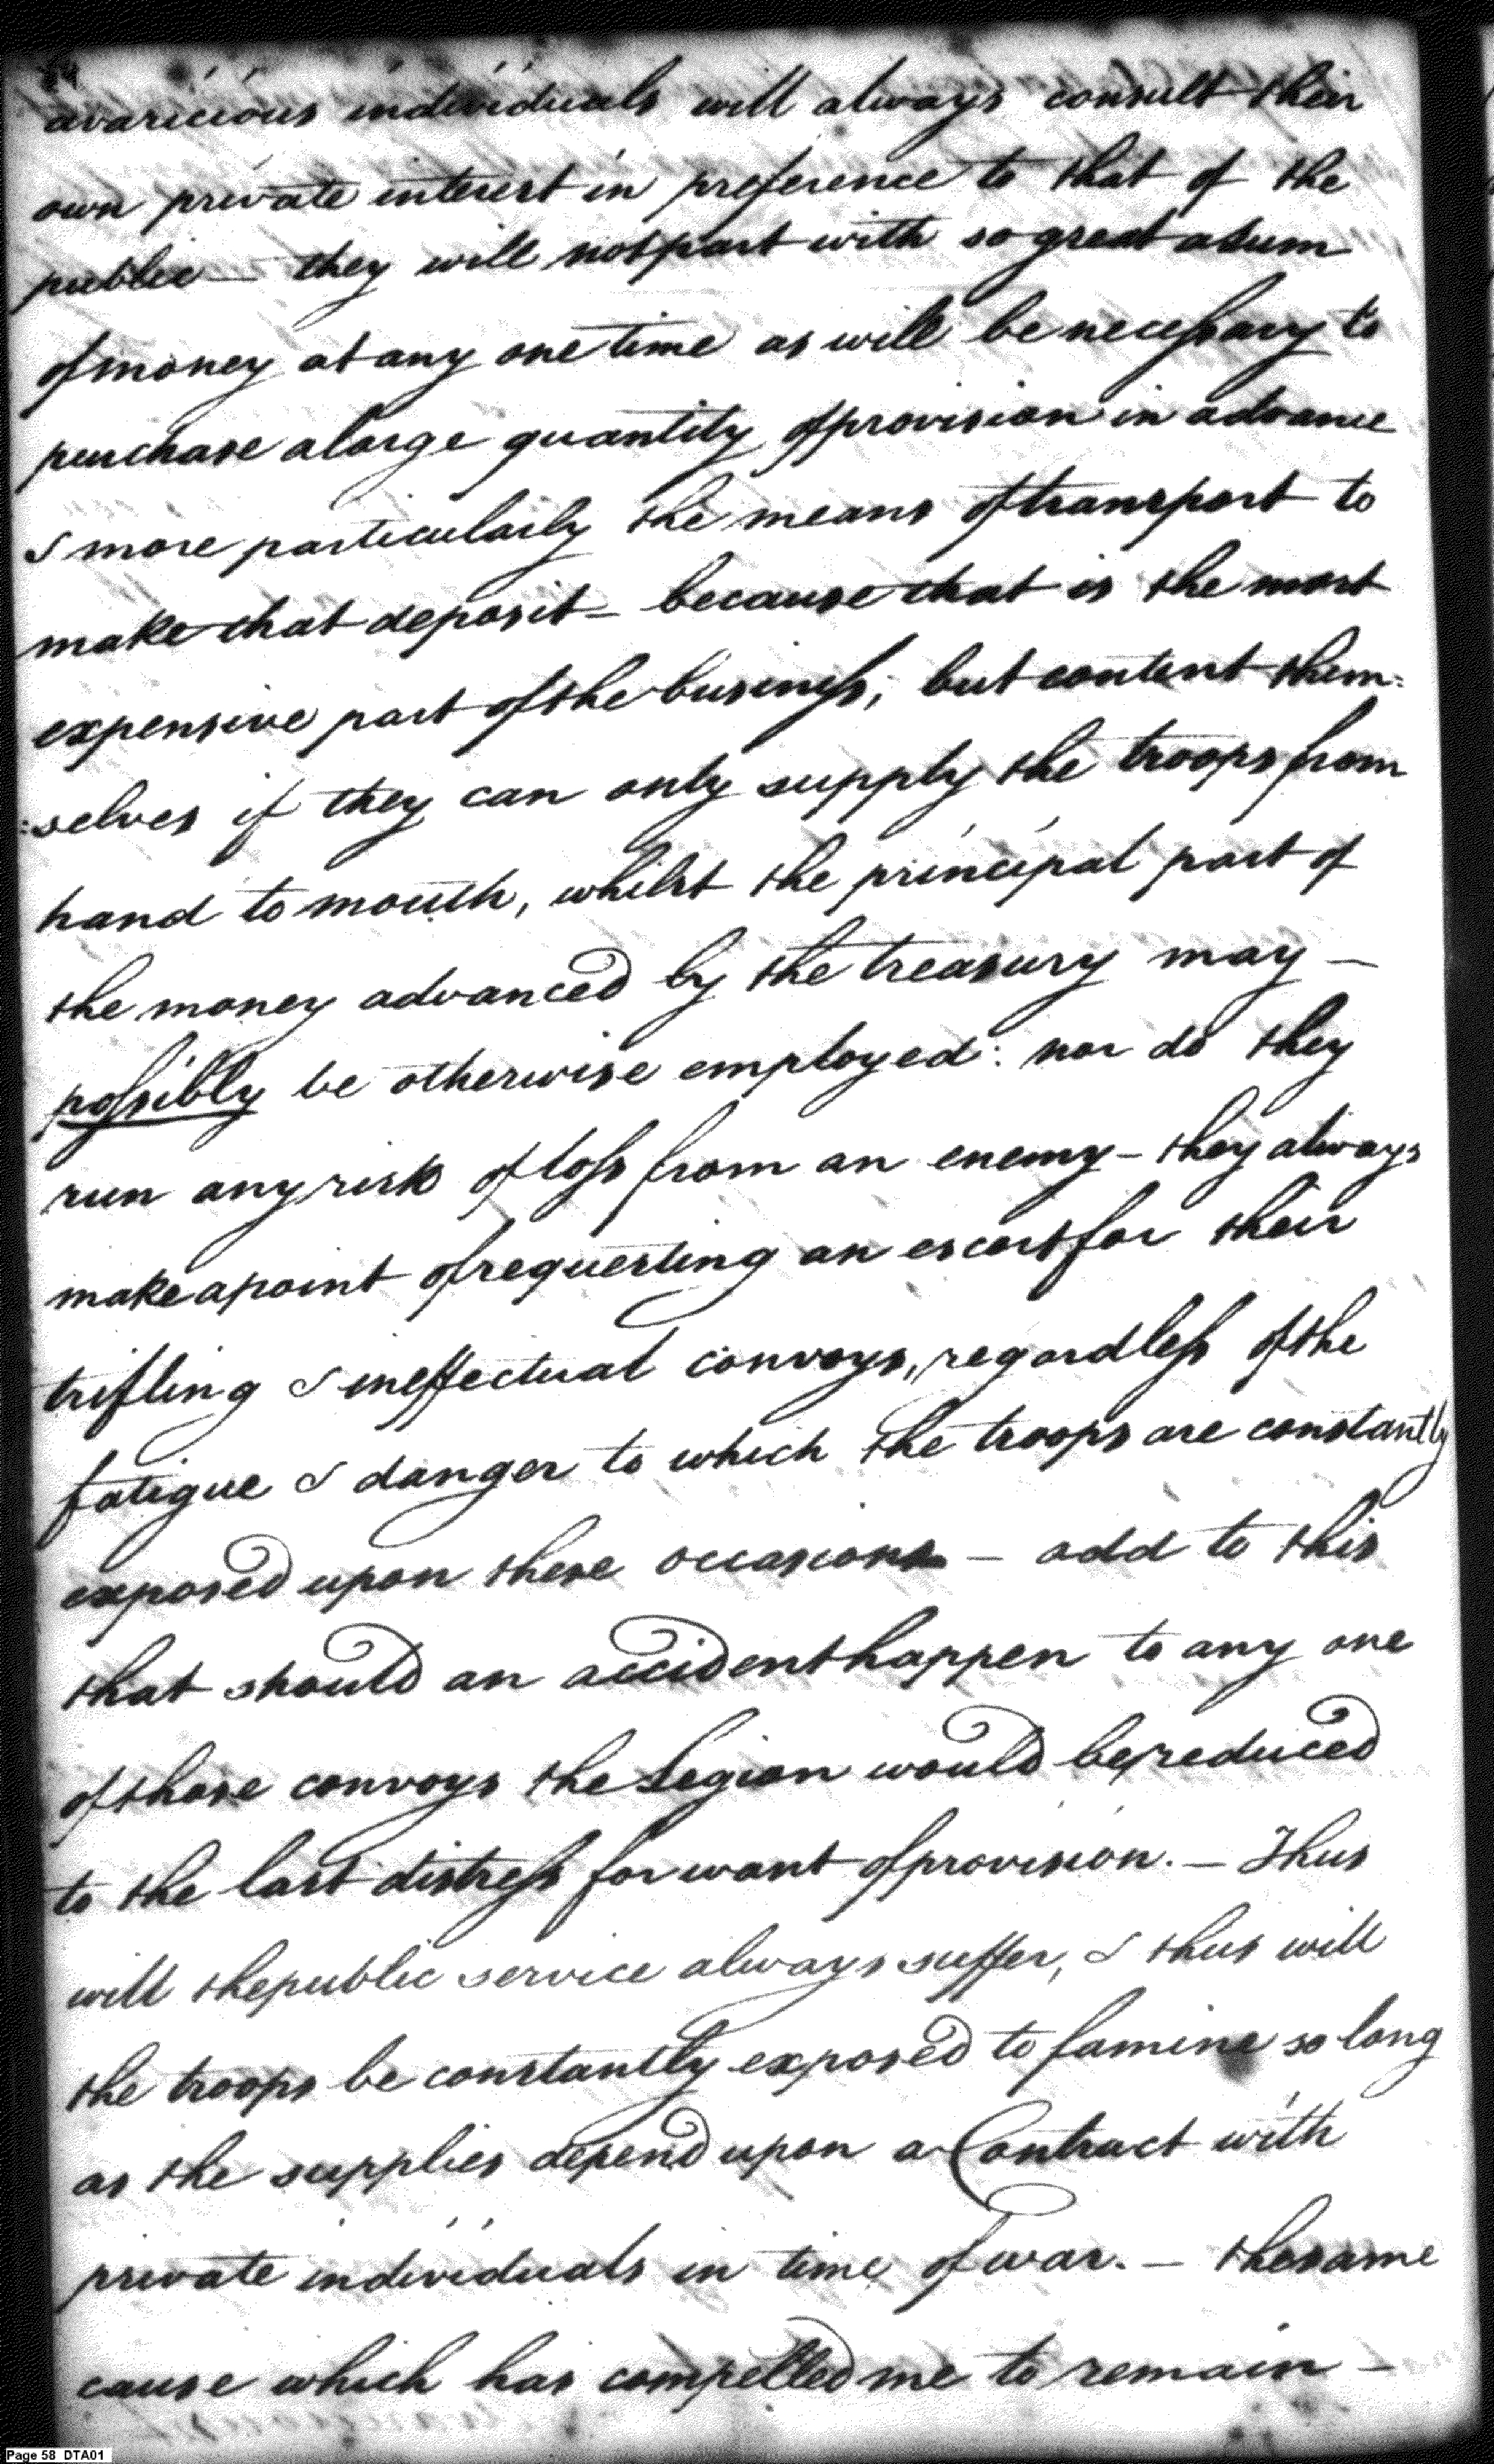 avaricious individuals will always consult their
own private interest in preference to that of the
public — they will not part with so great a sum
of money at any one time as will be necessary to
purchase a large quantity of provision in advance
& more particularly the means of transport to
make that deposit — because that is the most
expensive part of the business; but content them=
=selves if they can only supply the troops from
hand to mouth, whilst the principal part of
the money advanced by the treasury may —
possibly be otherwise employed: nor do they
run any risk of loss from an enemy — they always
make a point of requesting an escort for their
trifling & ineffectual convoys, regardless of the
fatigue & danger to which the troops are constantly
exposed upon these occasions — add to this
that should an accident happen to any one
of those convoys the Legion would be reduced
to the last distress for want of provision. — Thus
will the public service always suffer, & thus will
the troops be constantly exposed to famine so long
as the supplies depend upon a Contract with
private individuals in time of war. — the same
cause which has compelled me to remain —
Page 58 DTA01